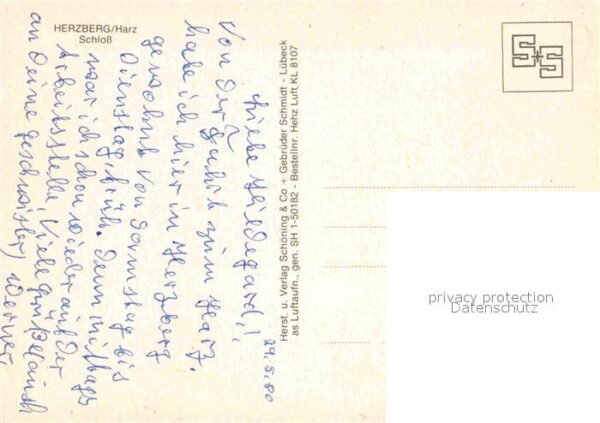 HERZBERG/Harz
Schloß
29.5.80
Liebe Hildegard!
Von der zum Harz.
habe ich hier in Herzberg
gewohnt von Donnstag bis
Dienstag früh. Denn mittags
war ich schon wieder auf der
Arbeitsstelle. Viele Grüße auch
an Deine geschwister, Werner.
Herst. u. Verlag Schöning & Co + Gebrüder Schmidt - Lübeck
as Luftaufn., gen. SH 1-50182 - Bestellnr. Hehz Luft KL 8107
S+S
privacy protection
Datenschutz